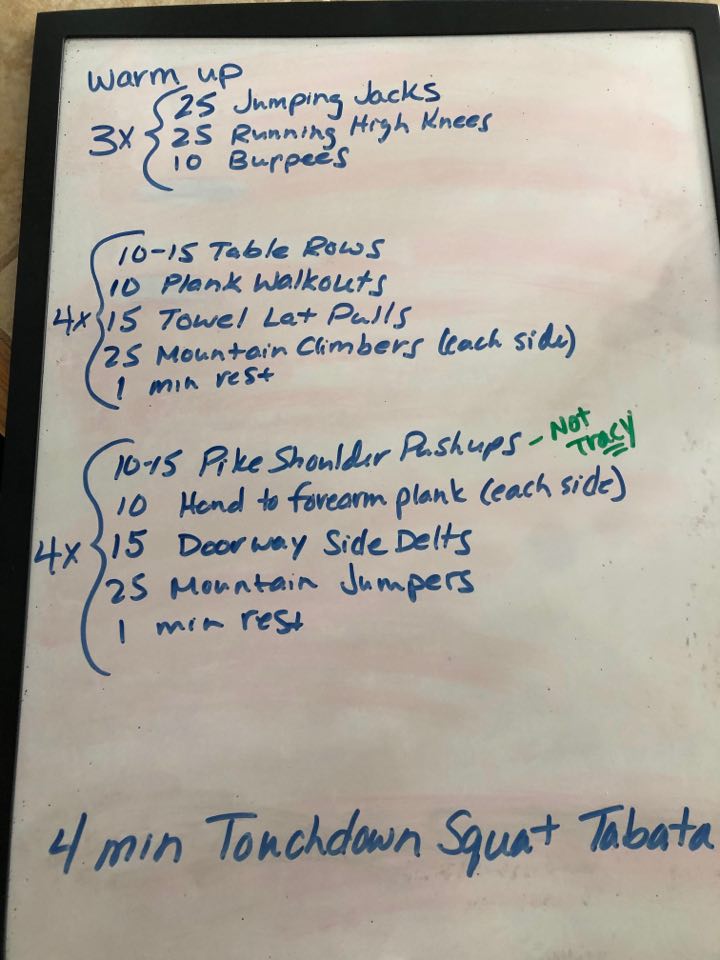 Warm up
3x
25 Jumping Jacks
25 Running High Knees
10 Burpees
4x
10-15 Table Rows
10 Plank Walkouts
15 Towel Lat Pulls
25 Mountain Climbers (each side)
1 min rest
4x
10-15 Pike Shoulder Pushups - Not Tracy
10 Hand to forearm plank (each side)
15 Doorway Side Delts
25 Mountain Jumpers
1 min rest
4 min Touchdown Squat Tabata